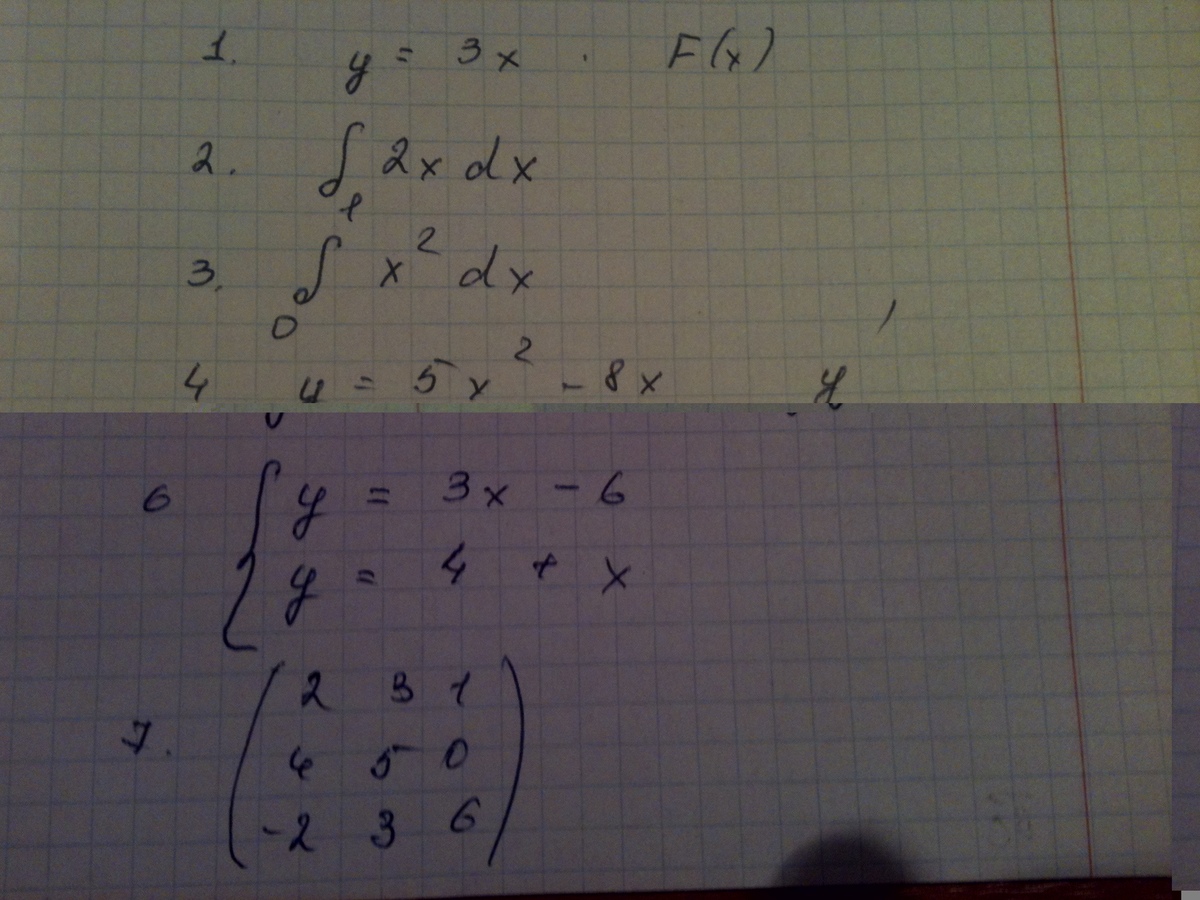 1. y = 3x . F(x)
2. ∫ 2x dx
3. ∫₀¹ x² dx
4 y = 5x² - 8x y'
6 { y = 3x - 6
y = 4 + x
7. ( 2 3 1
4 5 0
-2 3 6 )